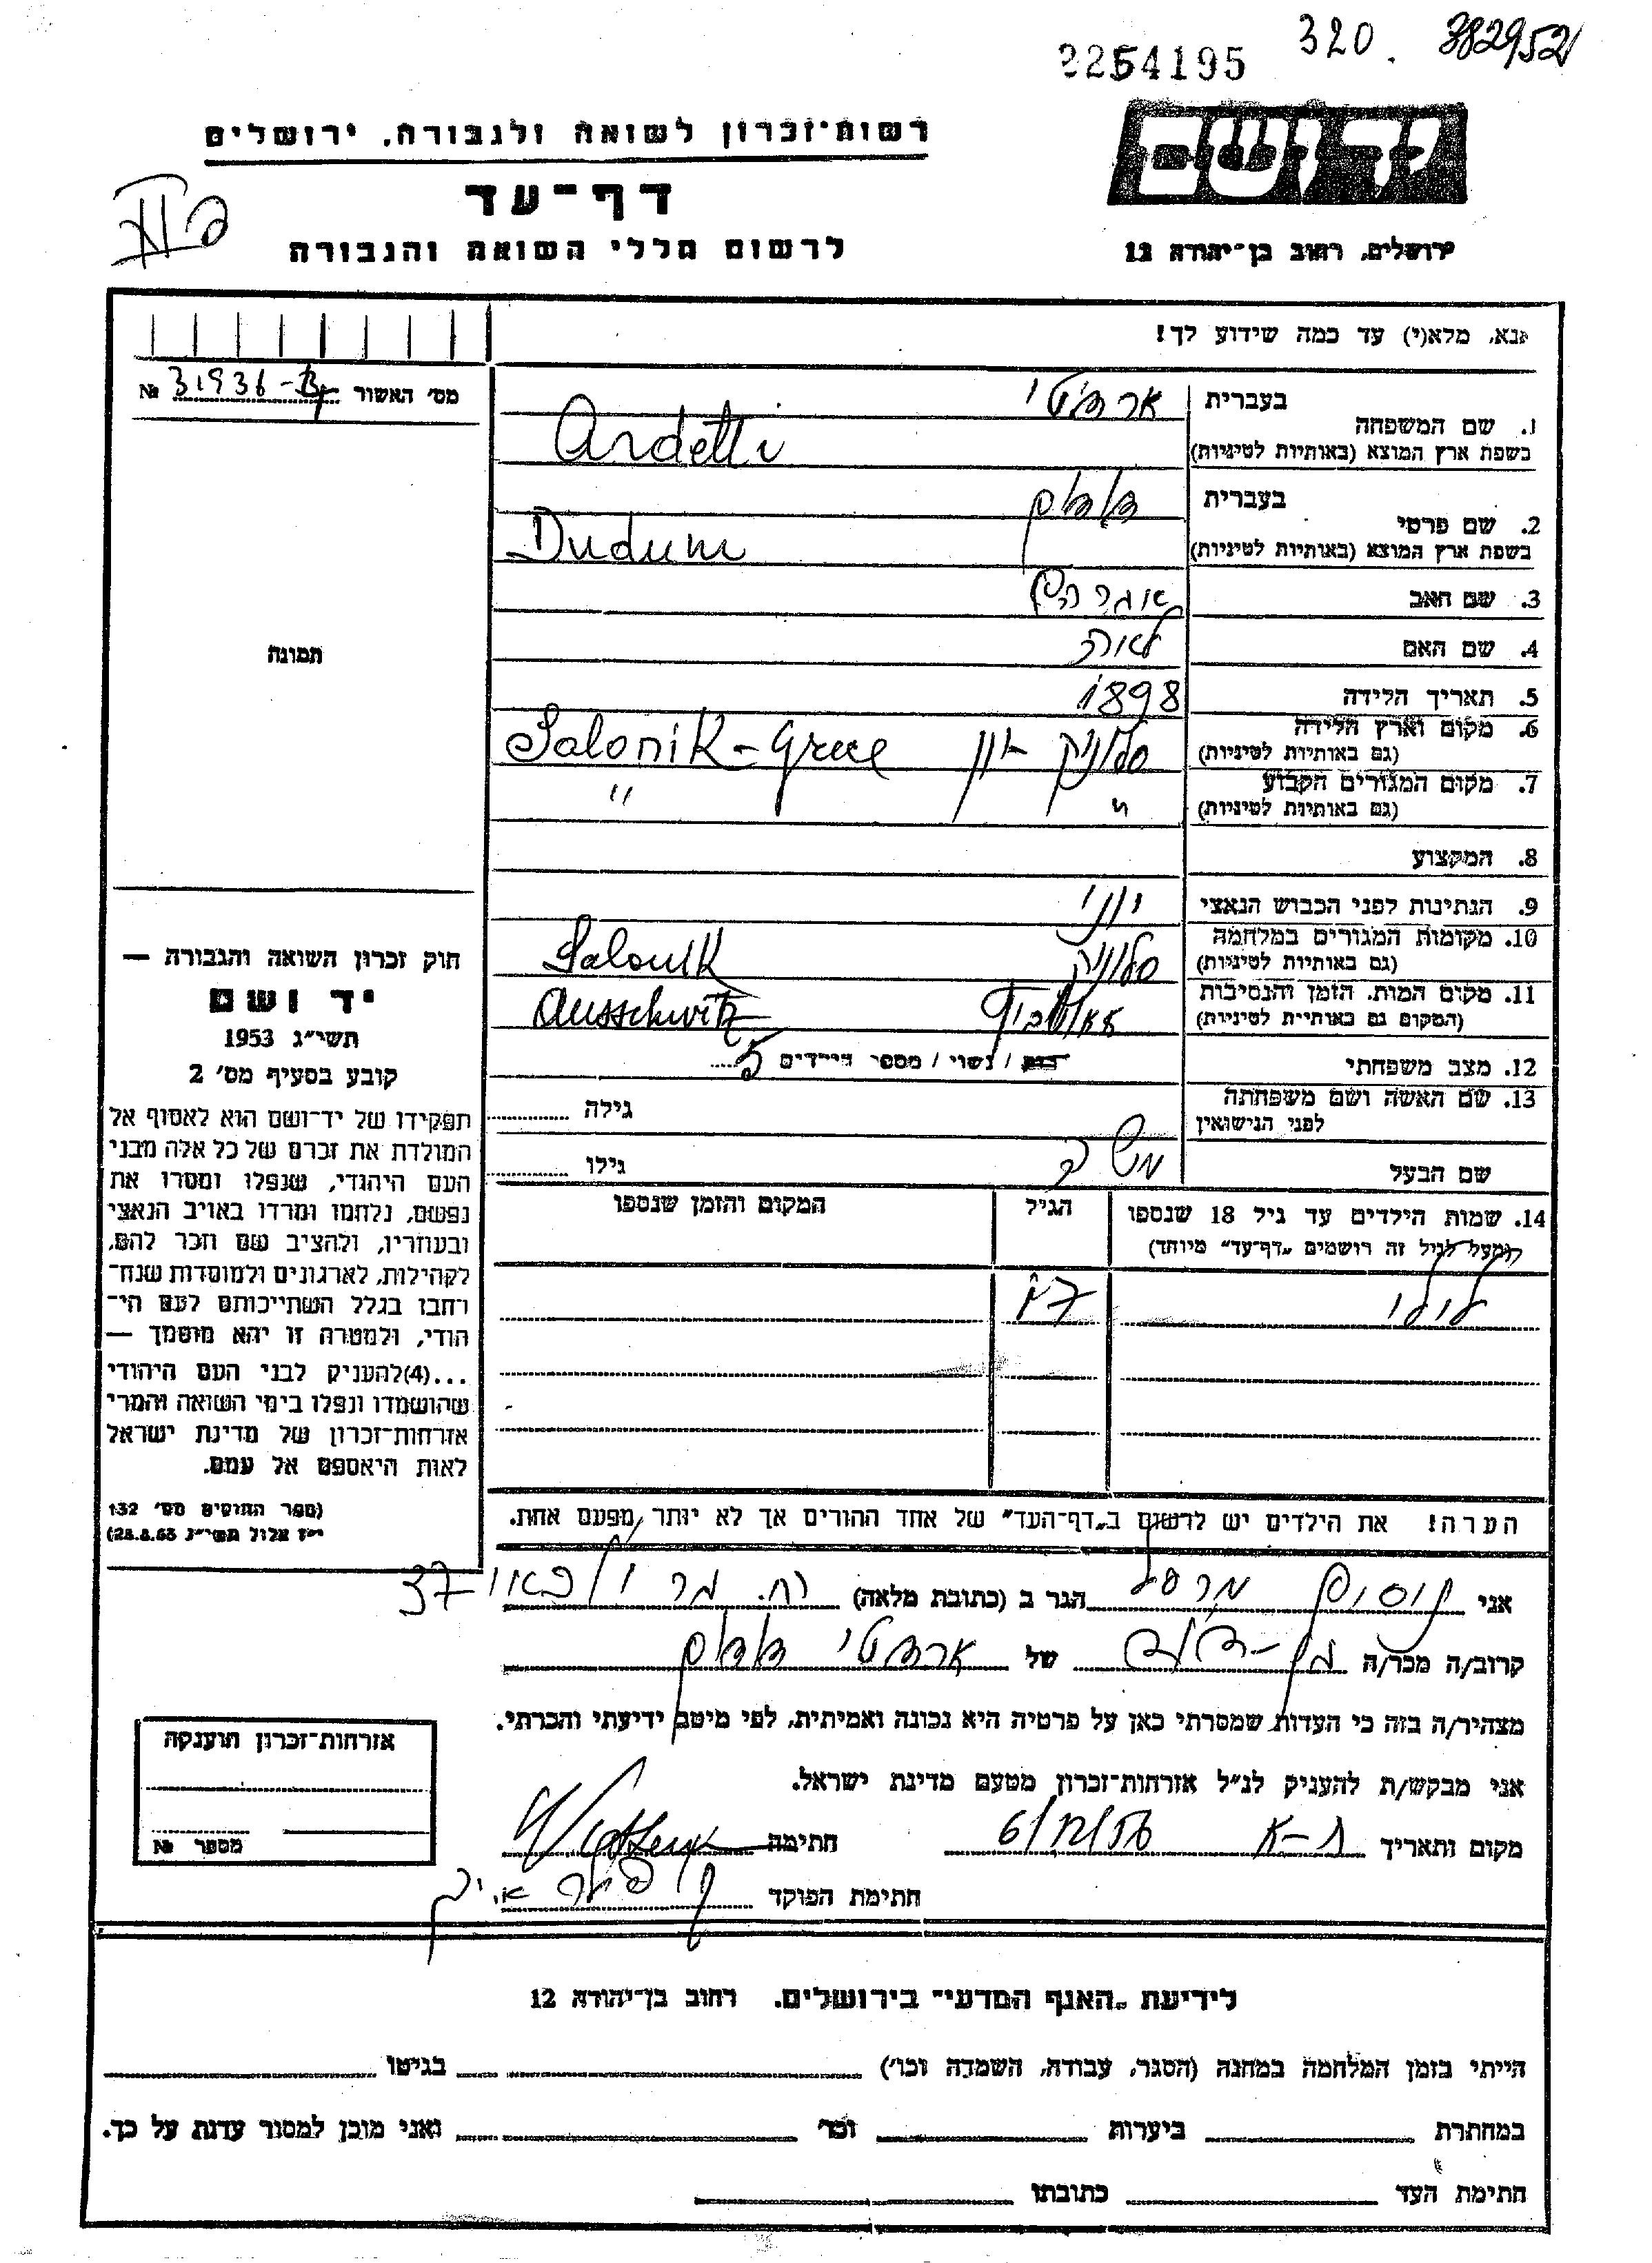 2254195 320. 382952
יד ושם
רשות־זכרון לשואה ולגבורה, ירושלים
דף־עד
לרשום חללי השואה והגבורה
ירושלים, רחוב בן־יהודה 12
אנא, מלא(י) עד כמה שידוע לך!
מס׳ האשור № 31936
1. שם המשפחה בעברית ארדיטי
בשפת ארץ המוצא (באותיות לטיניות) Ardetti
2. שם פרטי בעברית דודום
בשפת ארץ המוצא (באותיות לטיניות) Dudum
3. שם האב אברהם
4. שם האם לאורה
5. תאריך הלידה 1898
6. מקום וארץ הלידה (גם באותיות לטיניות) סלוניק יון Salonik - Grece
7. מקום המגורים הקבוע (גם באותיות לטיניות) " "
8. המקצוע
9. הנתינות לפני הכבוש הנאצי יוני
10. מקומות המגורים במלחמה (גם באותיות לטיניות) סלוניק Salonik
11. מקום המות, הזמן והנסיבות (המקום גם באותיות לטיניות) אאושביץ Ausschwitz
12. מצב משפחתי רווק / נשוי / מספר הילדים 5
13. שם האשה ושם משפחתה לפני הנישואין גילה
שם הבעל משה גילו
14. שמות הילדים עד גיל 18 שנספו הגיל המקום והזמן שנספו
(מעל לגיל זה רושמים „דף־עד" מיוחד)
לילי 17
הערה! את הילדים יש לרשום ב„דף־העד" של אחד ההורים אך לא יותר מפעם אחת.
תמונה
חוק זכרון השואה והגבורה —
יד ושם
תשי״ג 1953
קובע בסעיף מס׳ 2
תפקידו של יד־ושם הוא לאסוף אל
המולדת את זכרם של כל אלה מבני
העם היהודי, שנפלו ומסרו את
נפשם, נלחמו ומרדו באויב הנאצי
ובעוזריו, ולהציב שם וזכר להם,
לקהילות, לארגונים ולמוסדות שנח־
רבו בגלל השתייכותם לעם הי־
הודי, ולמטרה זו יהא מוסמך —
...(4) להעניק לבני העם היהודי
שהושמדו ונפלו בימי השואה והמרי
אזרחות־זכרון של מדינת ישראל
לאות היאספם אל עמם.
(ספר החוקים מס׳ 132
י״ז אלול תשי״ג 28.8.53)
אני מרסל הגר ב (כתובת מלאה) רח. 37
קרוב/ה מכר/ה בן-דוד של ארדיטי דודום
מצהיר/ה בזה כי העדות שמסרתי כאן על פרטיה היא נכונה ואמיתית, לפי מיטב ידיעתי והכרתי.
אני מבקש/ת להעניק לנ״ל אזרחות־זכרון מטעם מדינת ישראל.
מקום ותאריך ת-א 6/12/56 חתימה
חתימת הפוקד
אזרחות־זכרון הוענקה
מספר №
לידיעת „האגף המדעי" בירושלים, רחוב בן־יהודה 12
הייתי בזמן המלחמה במחנה (הסגר, עבודה, השמדה וכו׳) בגיטו
במחתרת ביערות וכד׳ ואני מוכן למסור עדות על כך.
חתימת העד כתובתו